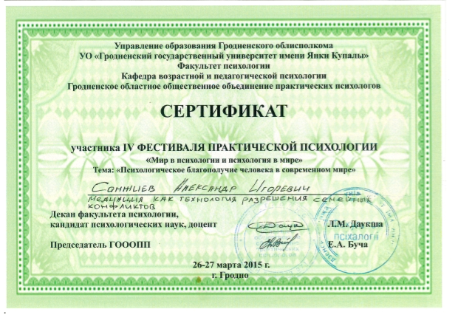 Управление образования Гродненского облисполкома
УО «Гродненский государственный университет имени Янки Купалы»
Факультет психологии
Кафедра возрастной и педагогической психологии
Гродненское областное общественное объединение практических психологов
СЕРТИФИКАТ
участника IV ФЕСТИВАЛЯ ПРАКТИЧЕСКОЙ ПСИХОЛОГИИ
«Мир в психологии и психология в мире»
Тема: «Психологическое благополучие человека в современном мире»
Александр Игоревич
МЕДИАЦИЯ КАК ТЕХНОЛОГИЯ РАЗРЕШЕНИЯ СЕМЕЙНЫХ
КОНФЛИКТОВ
Декан факультета психологии,
кандидат психологических наук, доцент Л.М. Даукша
Председатель ГОООПП Е.А. Буча
псіхалогіі
26-27 марта 2015 г.
г. Гродно